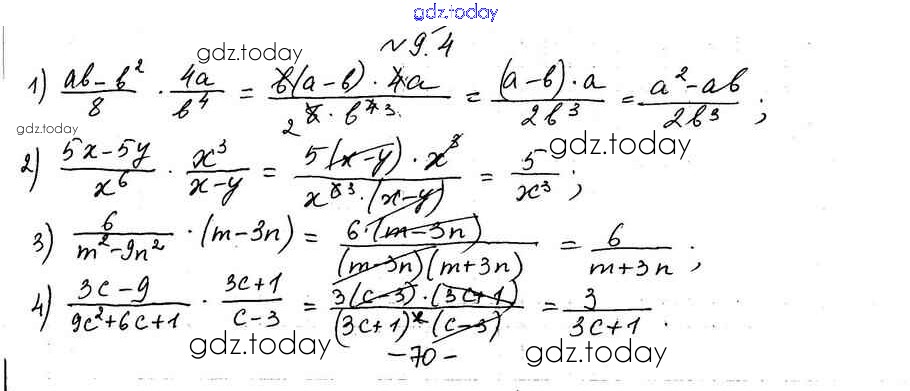 gdz.today
gdz.today
№ 9.4
1) (ab-b²)/8 · 4a/b⁴ = (b(a-b)·4a)/(2 8·b⁴ ³) = ((a-b)·a)/(2b³) = (a²-ab)/(2b³) ;
gdz.today
gdz.today
2) (5x-5y)/x⁶ · x³/(x-y) = (5(x-y)·x³)/(x⁶ ³·(x-y)) = 5/x³ ;
3) 6/(m²-9n²) · (m-3n) = (6·(m-3n))/((m-3n)(m+3n)) = 6/(m+3n) ;
4) (3c-9)/(9c²+6c+1) · (3c+1)/(c-3) = (3(c-3)·(3c+1))/((3c+1)²(c-3)) = 3/(3c+1) .
gdz.today
-70-
gdz.today